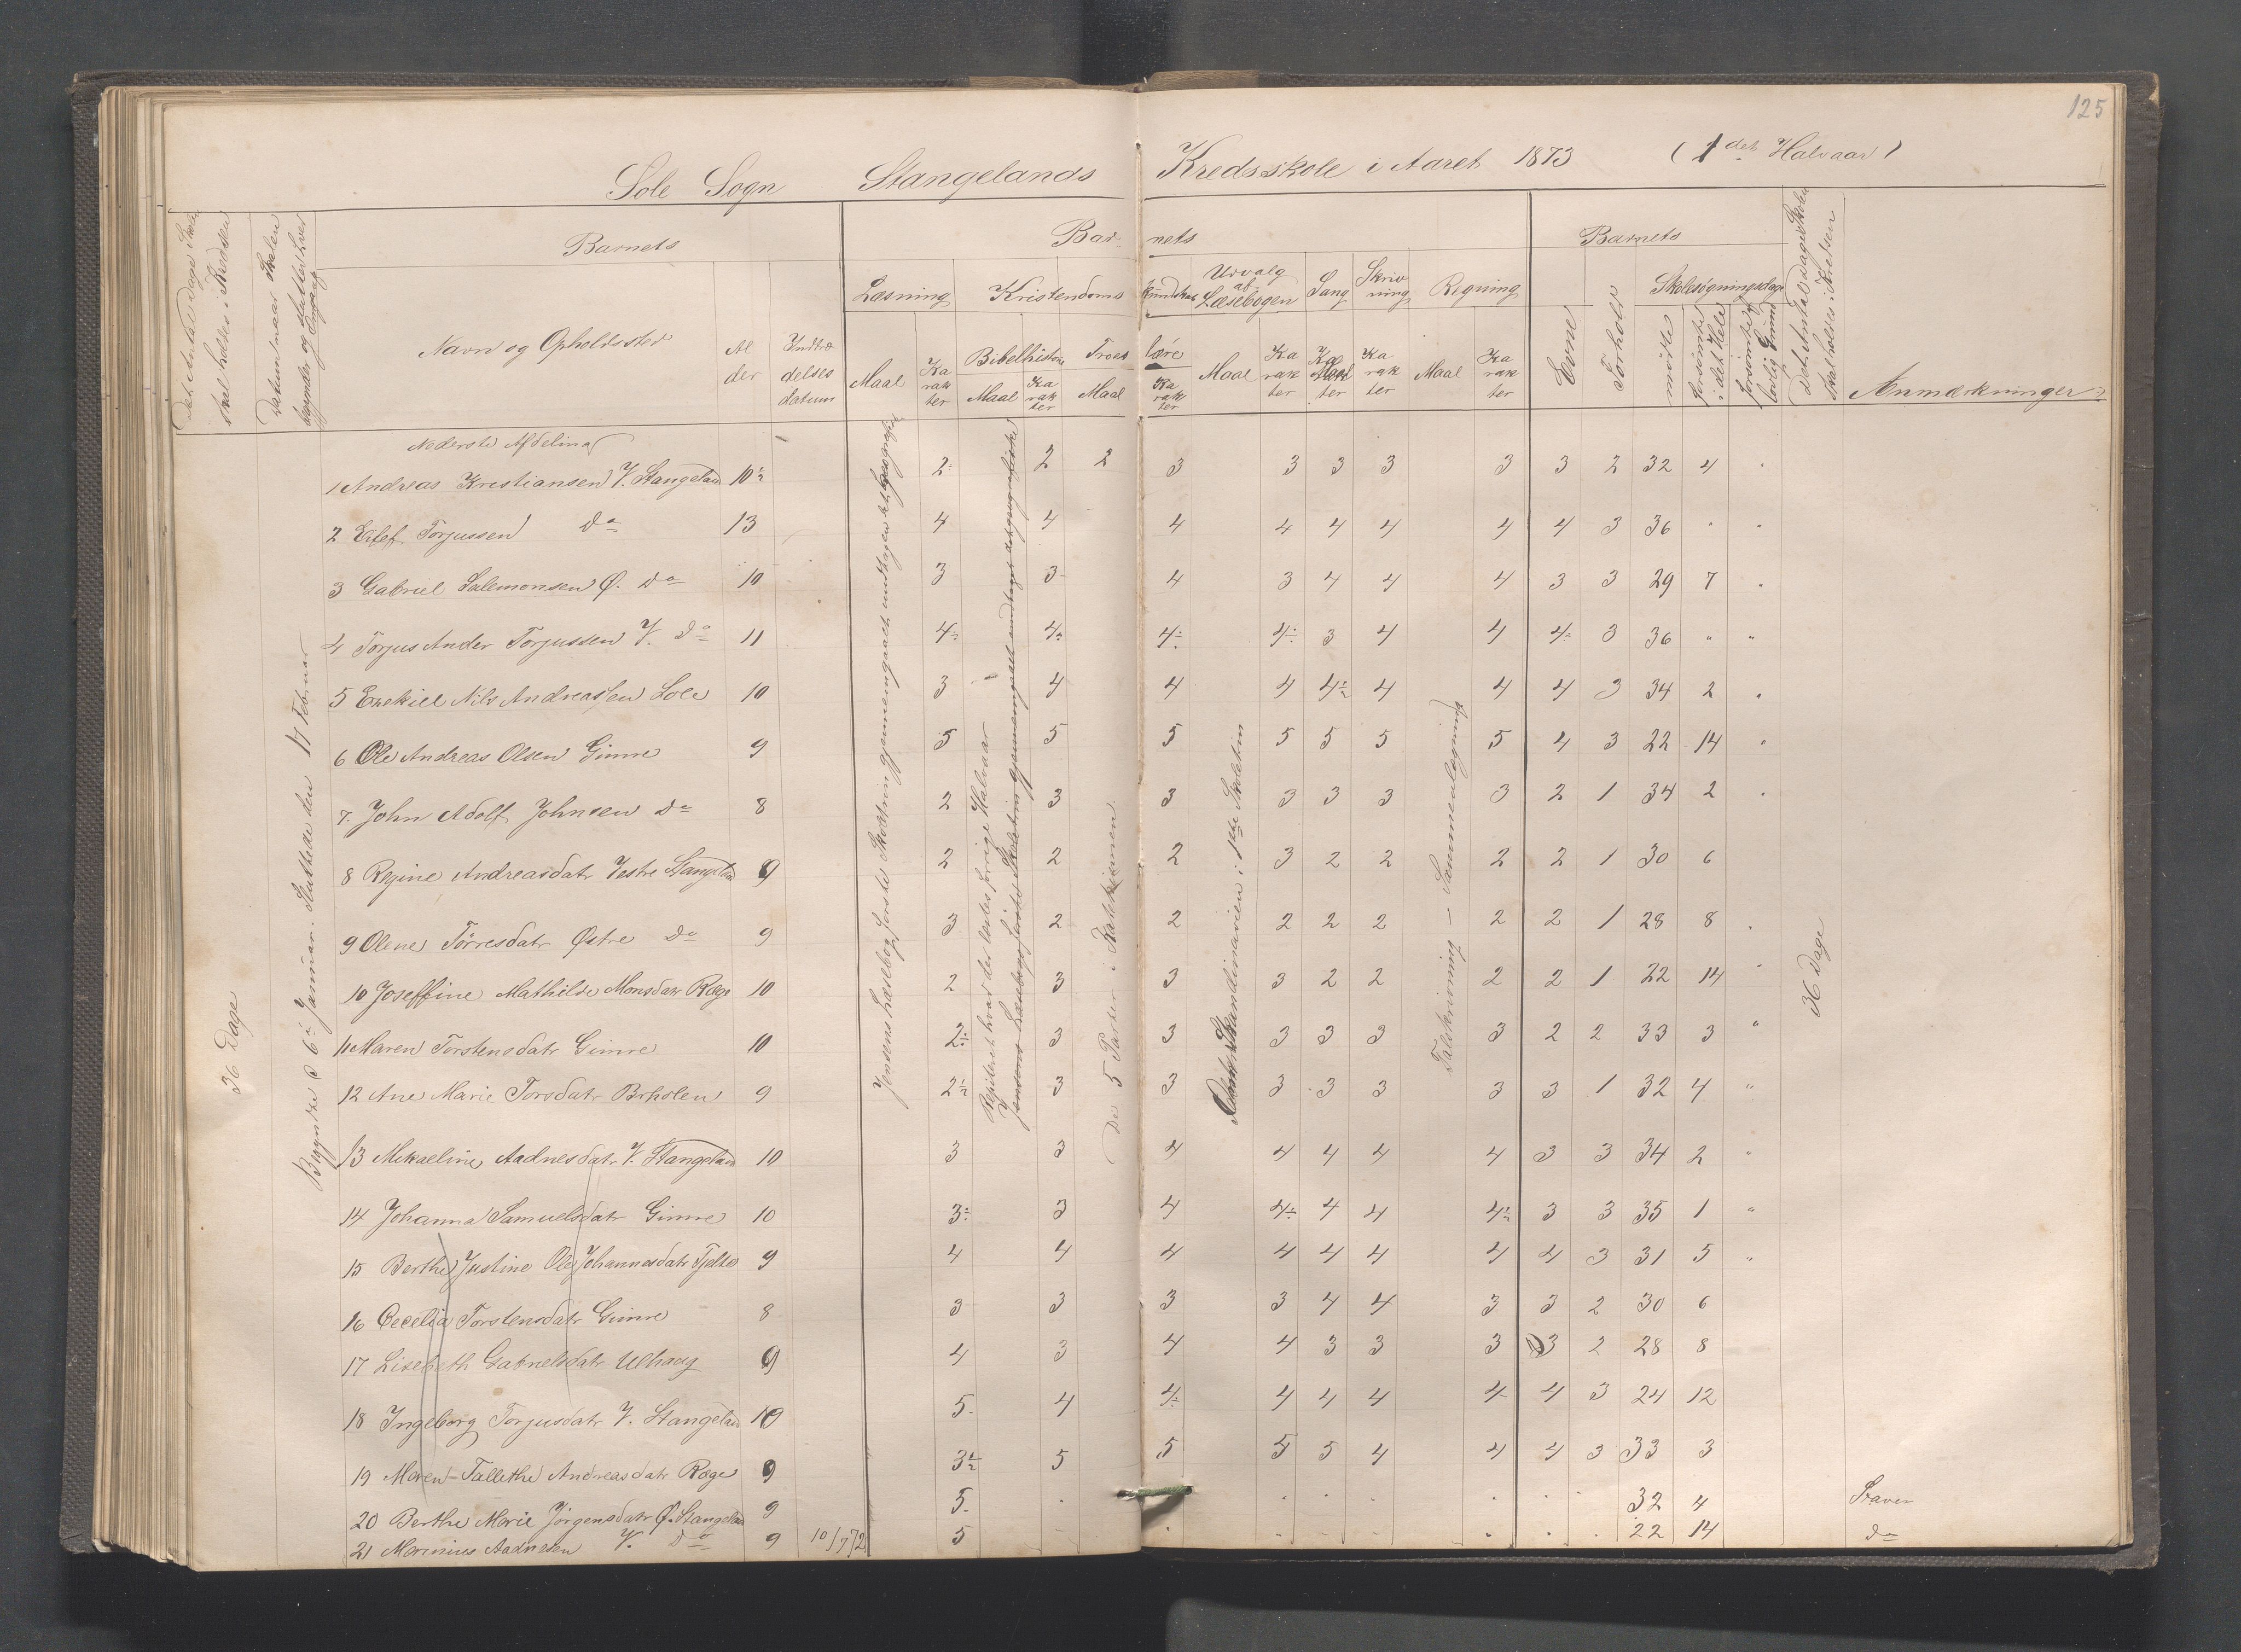 125
Sole Sogn Stangelands Kredsskole i Aaret 1873 (1det Halvaar)
Det Antal Dage Skole skal holdes i Kredsen
Datum naar Skolen begynder og slutter hver Omgang
Barnets
Navn og Opholdssted
Alder
Indtrædelses datum
Barnets
Læsning
Maal
Karakter
Kristendoms kundskab
Bibelhistorie
Maal
Karakter
Troeslære
Maal
Karakter
Udvalg af Læsebogen
Maal
Karakter
Sang
Karakter
Skrivning
Karakter
Regning
Maal
Karakter
Barnets
Evne
Forhold
Skolesøgningsdage
mødte
forsømte i det Hele
forsømte af lovlig Grund
Det Antal Dage Skole skal holdes i Kredsen
Anmærkninger
36 Dage
Begyndte d 6te Januar. Sluttede den 17 Februar
Jensens Læsebog første Skoletrin gjennemgaaet undtagen det geografiske
Repiteret hvad der læstes forrige Halvaar
De 5 Parter i Katekismen
Skandinavien i 1ste Skoletrin
Talskrivning – Sammenlægning
36 Dage
Nederste Afdeling
1 Andreas Kristiansen V. Stangeland 10½ 2 2 2 3 3 3 3 3 3 2 32 4 "
2 Eilef Torjussen do 13 4 4 4 4 4 4 4 4 3 36 " "
3 Gabriel Salemonsen Ø. do 10 3 3 4 3 4 4 4 3 3 29 7 "
4 Torjus Ander Torjussen V. do 11 4÷ 4÷ 4÷ 4÷ 3 4 4 4÷ 3 36 " "
5 Ezekiel Nils Andreassen Sole 10 3 4 4 4 4½ 4 4 4 3 34 2 "
6 Ole Andreas Olsen Gimre 9 5 5 5 5 5 5 5 4 3 22 14 "
7. John Adolf Johnsen do 8 2 3 3 3 3 3 3 2 1 34 2 "
8 Regine Andreasdatr Vestre Stangeland 9 2 2 2 3 2 2 2 2 1 30 6
9 Olene Tørresdatr Østre do 9 3 2 2 2 2 2 2 2 1 28 8 "
10 Joseffine Mathilde Monsdatr Ræge 10 2 3 3 3 2 2 2 2 1 22 14 "
11 Maren Torstensdatr Gimre 10 2÷ 3 3 3 3 3 3 2 2 33 3 "
12 Ane Marie Torsdatr 9 2½ 3 3 3 3 3 3 3 1 32 4 "
13 Mikaeline Aadnesdatr V. Stangeland 10 3 3 4 4 4 4 4 3 3 34 2 "
14 Johanna Samuelsdatr Gimre 10 3÷ 3 4 4÷ 4 4 4½ 3 3 35 1 "
15 Berthe Justine Ole Johannesdatr Tjelta 9 4 4 4 4 4 4 4 4 3 31 5 "
16 Cecelia Torstensdatr Gimre 8 3 3 3 3 4 4 3 3 2 30 6
17 Lisebeth Gabrielsdatr Ulhaug 9 4 3 4 4 3 3 3 3 2 28 8
18 Ingeborg Torjusdatr V. Stangeland 10 5 4 4÷ 4 4 4 4 4 3 24 12
19 Maren Tallethe Andreasdatr Ræge 9 3½ 5 5 5 5 4 4 4 3 33 3
20 Berthe Marie Jørgensdatr Ø. Stangeland 9 5 " " " " " " " 32 4 Staver
21 Marinius Aadnesen V. do 9 10/7 72 5 " " " " " " " " 22 14 do